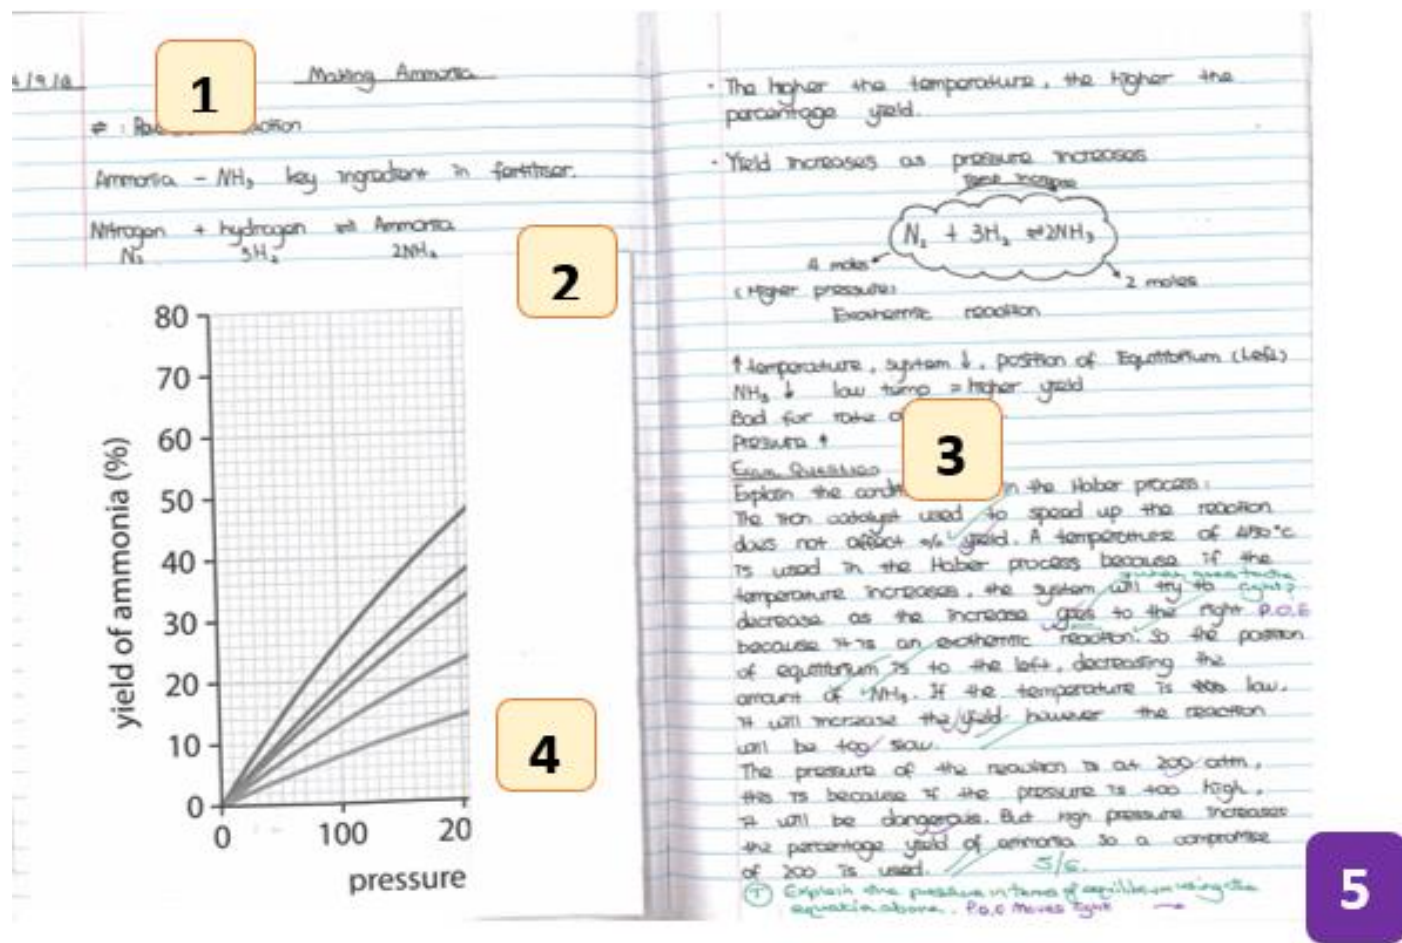 4/9/18
1
Making Ammonia
⇌ : Re
Ammonia - NH₃ key ingredient in fertiliser.
Nitrogen + hydrogen ⇌ Ammonia
N₂ 3H₂ 2NH₃
2
80
70
60
50
40
30
20
10
0
yield of ammonia (%)
0 100 20
pressure
4
· The higher the temperature, the higher the
percentage yield.
· Yield increases as pressure increases
Temp increase
N₂ + 3H₂ ⇌ 2NH₃
4 moles
2 moles
(Higher pressure)
Exothermic reaction
↑ temperature, system ↓, position of Equilibrium (Left)
NH₃ ↓ low temp = higher yield
Bad for rate o
Pressure ↑
3
Exam Question
Explain the condit in the Haber process:
The iron catalyst used to speed up the reaction
does not affect % yield. A temperature of 450°C
is used in the Haber process because if the
temperature increases, the system will try to
decrease as the increase goes to the right P.O.E
because it is an exothermic reaction. So the position
of equilibrium is to the left, decreasing the
amount of NH₃. If the temperature is too low,
it will increase the yield however the reaction
will be too slow.
The pressure of the reaction is at 200 atm,
this is because if the pressure is too high,
it will be dangerous. But high pressure increases
the percentage yield of ammonia so a compromise
of 200 is used. 5/6.
(T) Explain the pressure in terms of equilibrium using the
equation above. P.O.E Moves right →
5